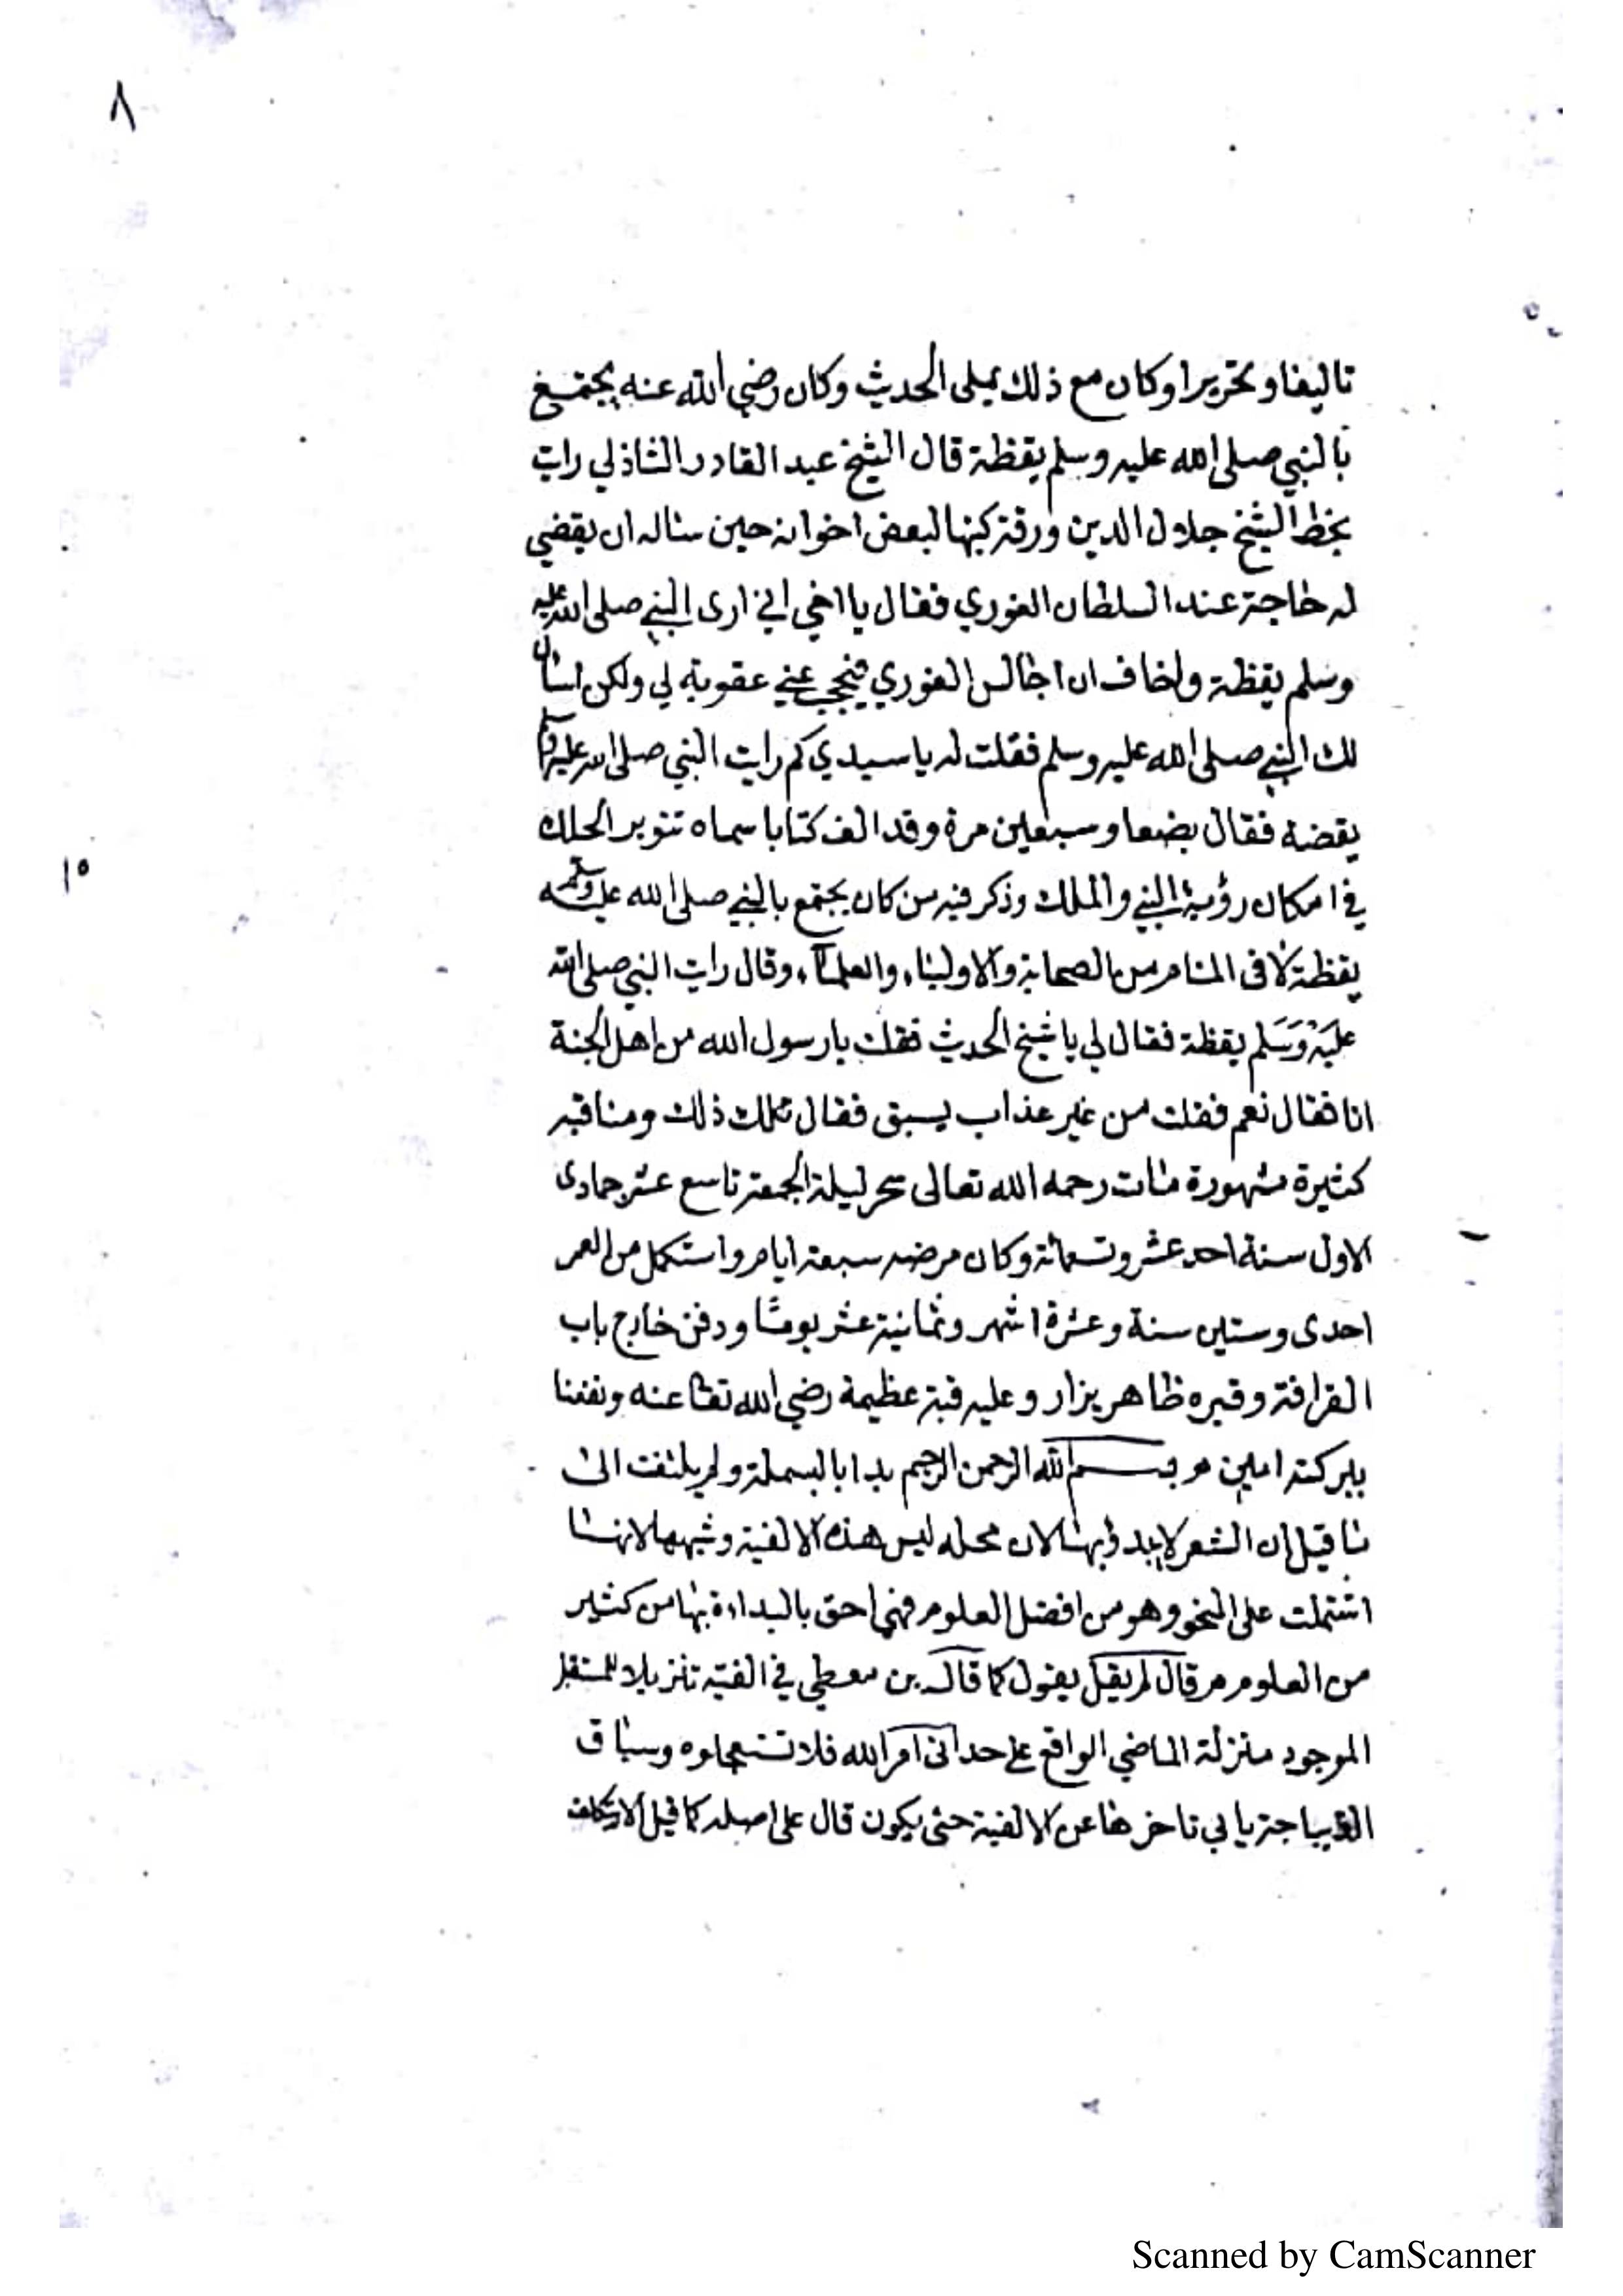 ٨
تاليفا وتحريرا وكان مع ذلك يملى الحديث وكان رضي الله عنه يجتمع
بالنبي صلى الله عليه وسلم يقظة قال الشيخ عبد القادر الشاذلي رايت
بخط الشيخ جلال الدين ورقة كتبها لبعض اخوانه حين سئاله ان يقضي
له حاجة عند السلطان الغوري فقال يا اخي اني ارى النبي صلى الله عليه
وسلم يقظة واخاف ان اجالس الغوري فيحجب عني عقوبة لي ولكن اسأل
لك النبي صلى الله عليه وسلم فقلت له يا سيدي كم رايت النبي صلى الله عليه وسلم
يقضة فقال بضعا وسبعين مرة وقد الف كتابا سماه تنوير الحلك
في امكان رؤية النبي والملك وذكر فيه من كان يجتمع بالنبي صلى الله عليه وسلم
يقظة لا فى المنام من الصحابة والاولياء والعلمآء وقال رايت النبي صلى الله
عليه وسلم يقظة فقال لي يا شيخ الحديث فقلت يا رسول الله من اهل الجنة
انا فقال نعم فقلت من غير عذاب يسبق فقال لك ذلك ومناقبه
كثيرة مشهورة مات رحمه الله تعالى سحر ليلة الجمعة تاسع عشر جمادى
الاول سنة احد عشر وتسمائة وكان مرضه سبعة ايام واستكمل من العمر
احدى وستين سنة وعشرة اشهر وثمانية عشر يوما ودفن خارج باب
القرافة وقبره ظاهر يزار وعليه قبة عظيمة رضي الله تعا عنه ونفعنا
ببركته امين ص بسم الله الرحمن الرحيم بدا بالبسملة ولم يلتفت الى
ما قيل ان الشعر لا يبدؤ بها لان محله ليس هذه الالفية وشبهها لانها
اشتملت على النحو وهو من افضل العلوم فهي احق بالبداءة بها من كثير
من العلوم ص قال لم يقل يقول كما قاله بن معطي في الفيته تنزيلا للمستقبل
الموجود منزلة الماضي الواقع على حد اتى امر الله فلا تستعجلوه وسياق
الديباجة يابي تاخرها عن الالفية حتى يكون قال على اصله كما قيل الا بتكلف
١٥
Scanned by CamScanner